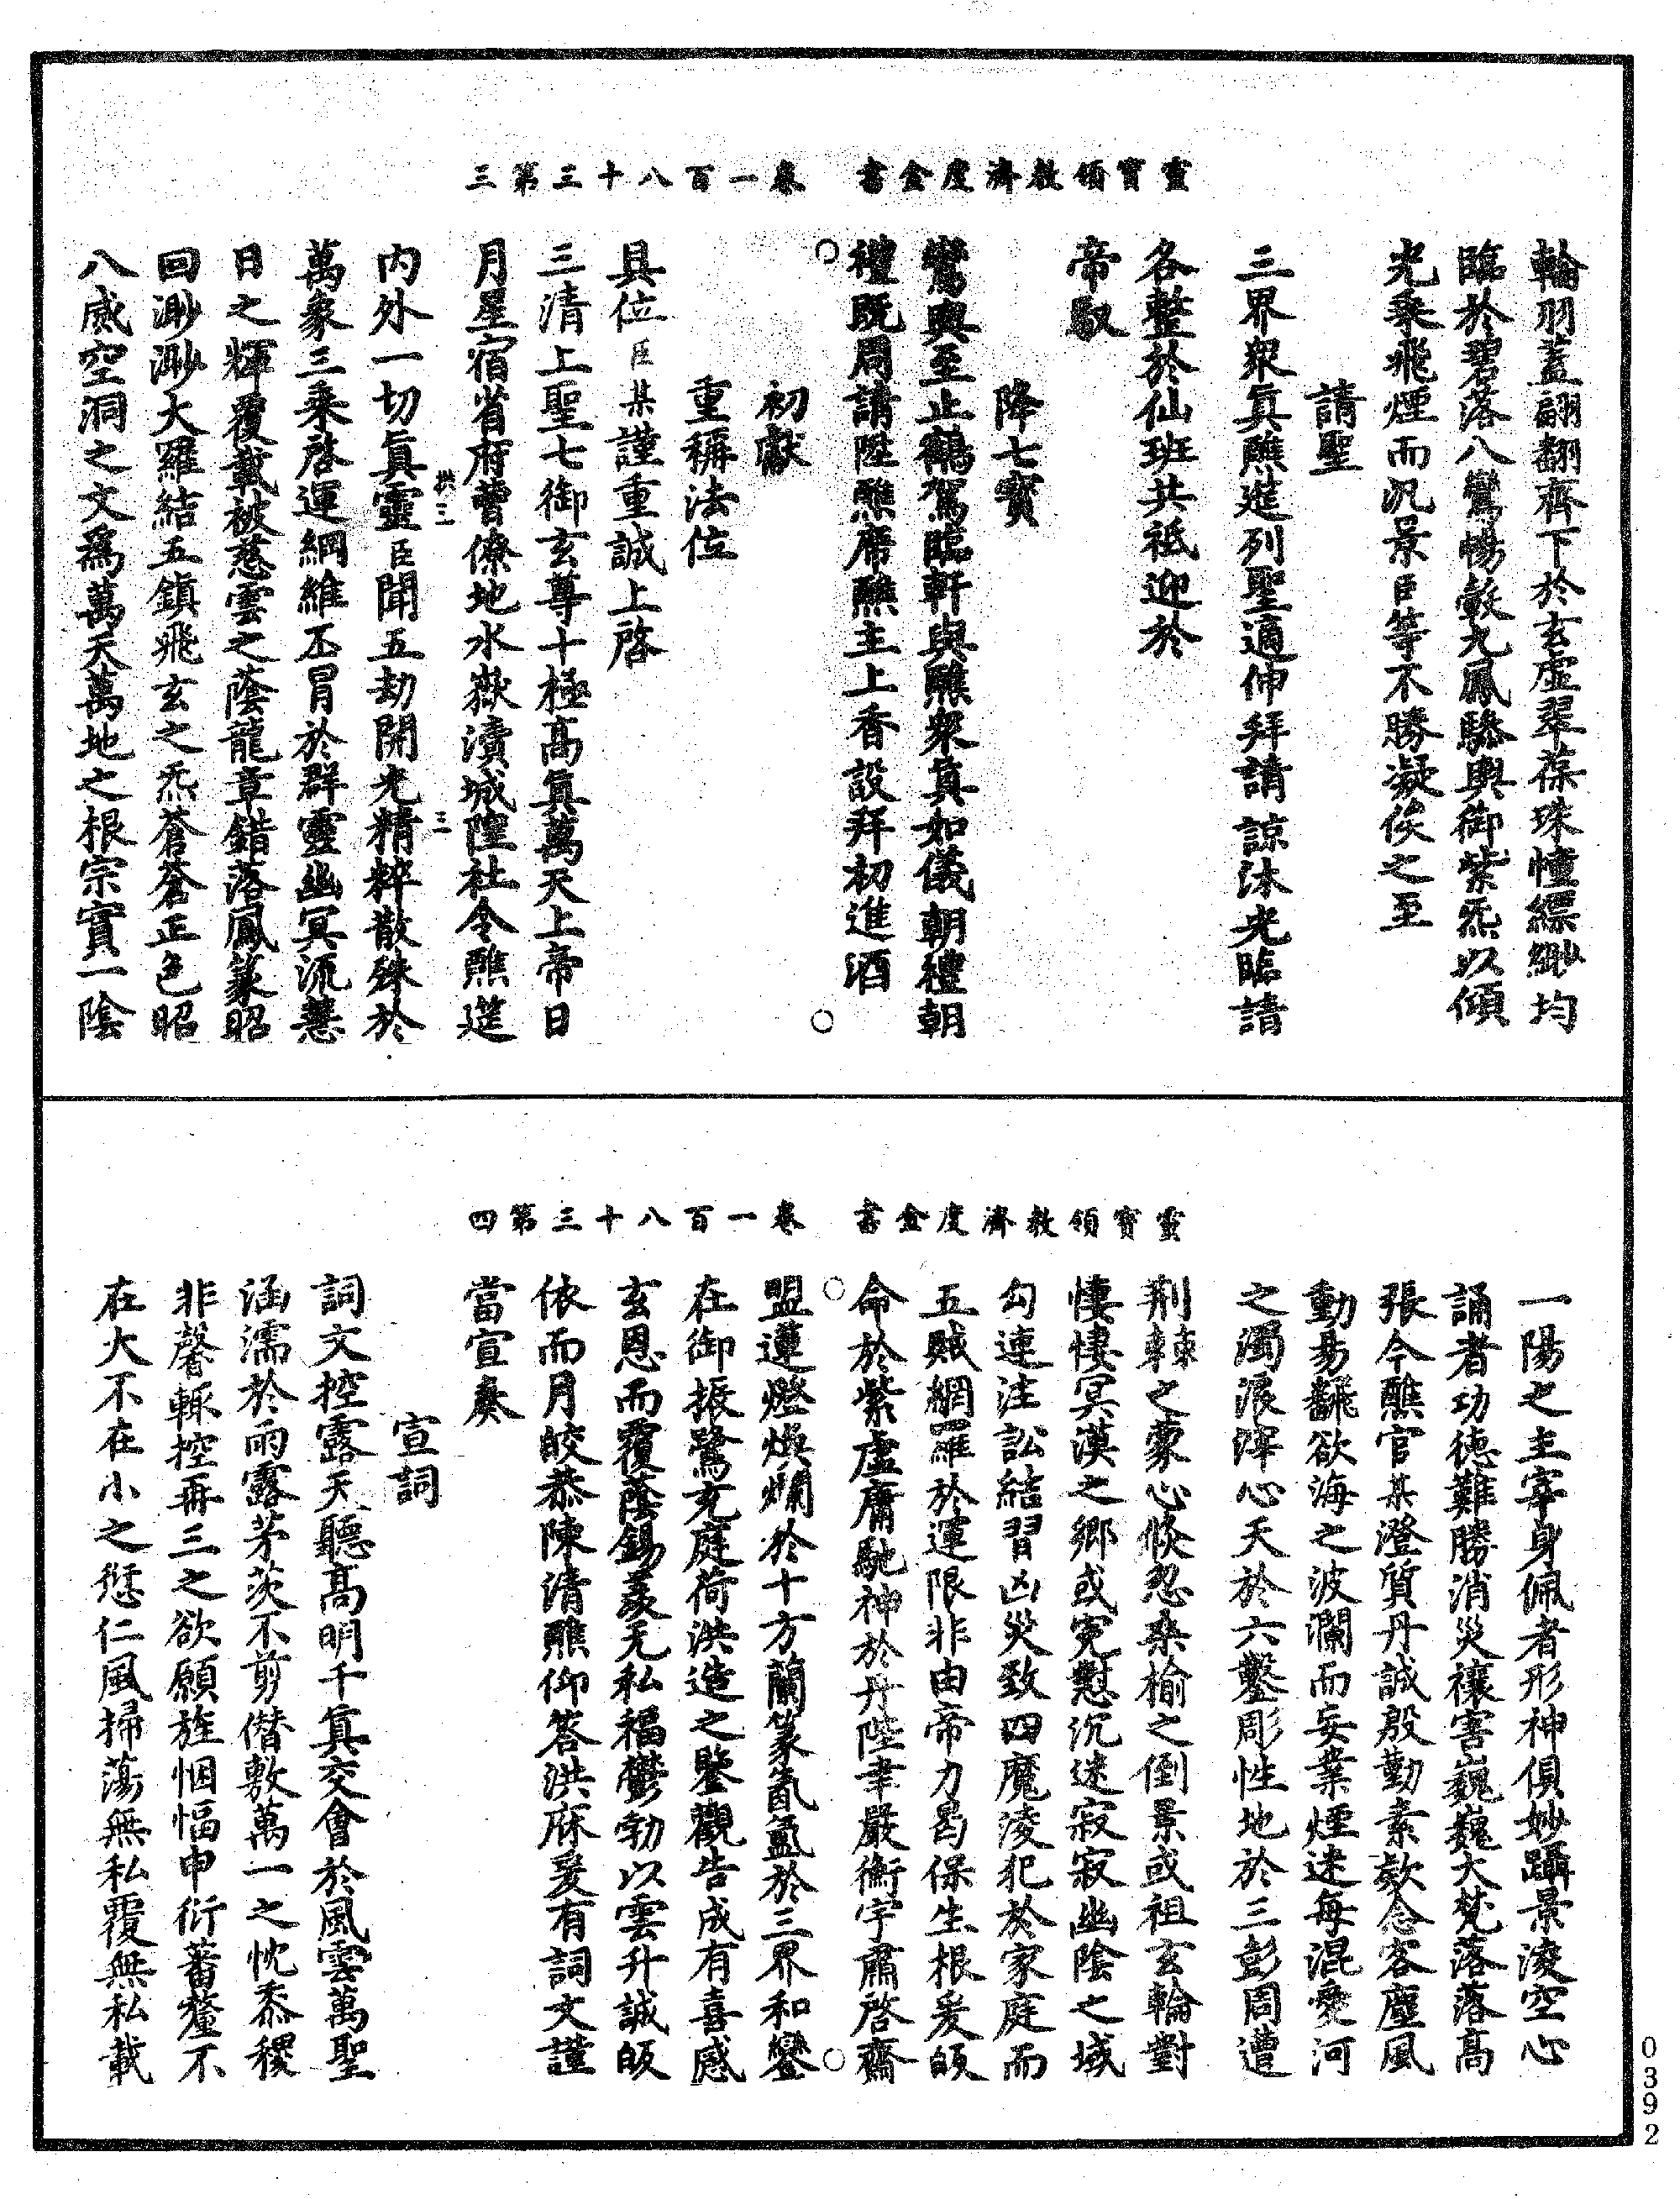 靈寶領教濟度金書　卷一百八十三第三
輪羽蓋翩翻齊下於玄虛翠葆珠幢縹緲均
臨於碧落八鸞暢轂九鳳驂輿御紫炁以傾
光乘飛煙而汎景臣等不勝凝俟之至
請聖
三界衆眞醮筵列聖適伸拜請諒沐光臨請
各整於仙班共祇迎於
帝馭
降七寶
鸞輿至止鶴駕臨軒與醮衆眞如儀朝禮朝
禮旣周請陞醮席醮主上香設拜初進酒
初獻
重稱法位
具位臣某謹重誠上啓
三清上聖七御玄尊十極高眞萬天上帝日
月星宿省府曹僚地水嶽瀆城隍社令醮筵
內外一切眞靈臣聞五劫開光精粹散殊於
萬象三乘啓運綱維丕冐於群靈幽冥流慧
日之輝覆載被慈雲之蔭龍章錯落鳳篆昭
回渺渺大羅結五鎮飛玄之炁蒼蒼正色昭
八威空洞之文爲萬天萬地之根宗實一陰
靈寶領教濟度金書　卷一百八十三第四
一陽之主宰身佩者形神俱妙躡景淩空心
誦者功德難勝消災禳害巍巍大梵落落高
張今醮官某澄質丹誠殷勤素欵念客塵風
動易飜欲海之波瀾而妄業煙迷每混愛河
之濁浪渾心天於六鑿彫性地於三彭周遭
荆棘之蒙心倐忽桑榆之倒景或祖玄輪對
悽悽冥漠之鄉或寃懟沉迷寂寂幽陰之域
勾連注訟結習凶災致四魔淩犯於家庭而
五賊網羅於運限非由帝力曷保生根爰皈
命於紫虛庸馳神於丹陛聿嚴衡宇肅啓齋
盟蓮燈煥爛於十方蘭篆氤氳於三界和鑾
在御振鷺充庭荷洪造之鑒觀告成有喜感
玄恩而覆蔭錫羨无私福鬱勃以雲升誠皈
依而月皎恭陳清醮仰答洪庥爰有詞文謹
當宣奏
宣詞
詞文控露天聽高明千眞交會於風雲萬聖
涵濡於雨露茅茨不剪僭敷萬一之忱黍稷
非馨輒控再三之欲願旌悃愊申衍蕃釐不
在大不在小之愆仁風掃蕩無私覆無私載
0392